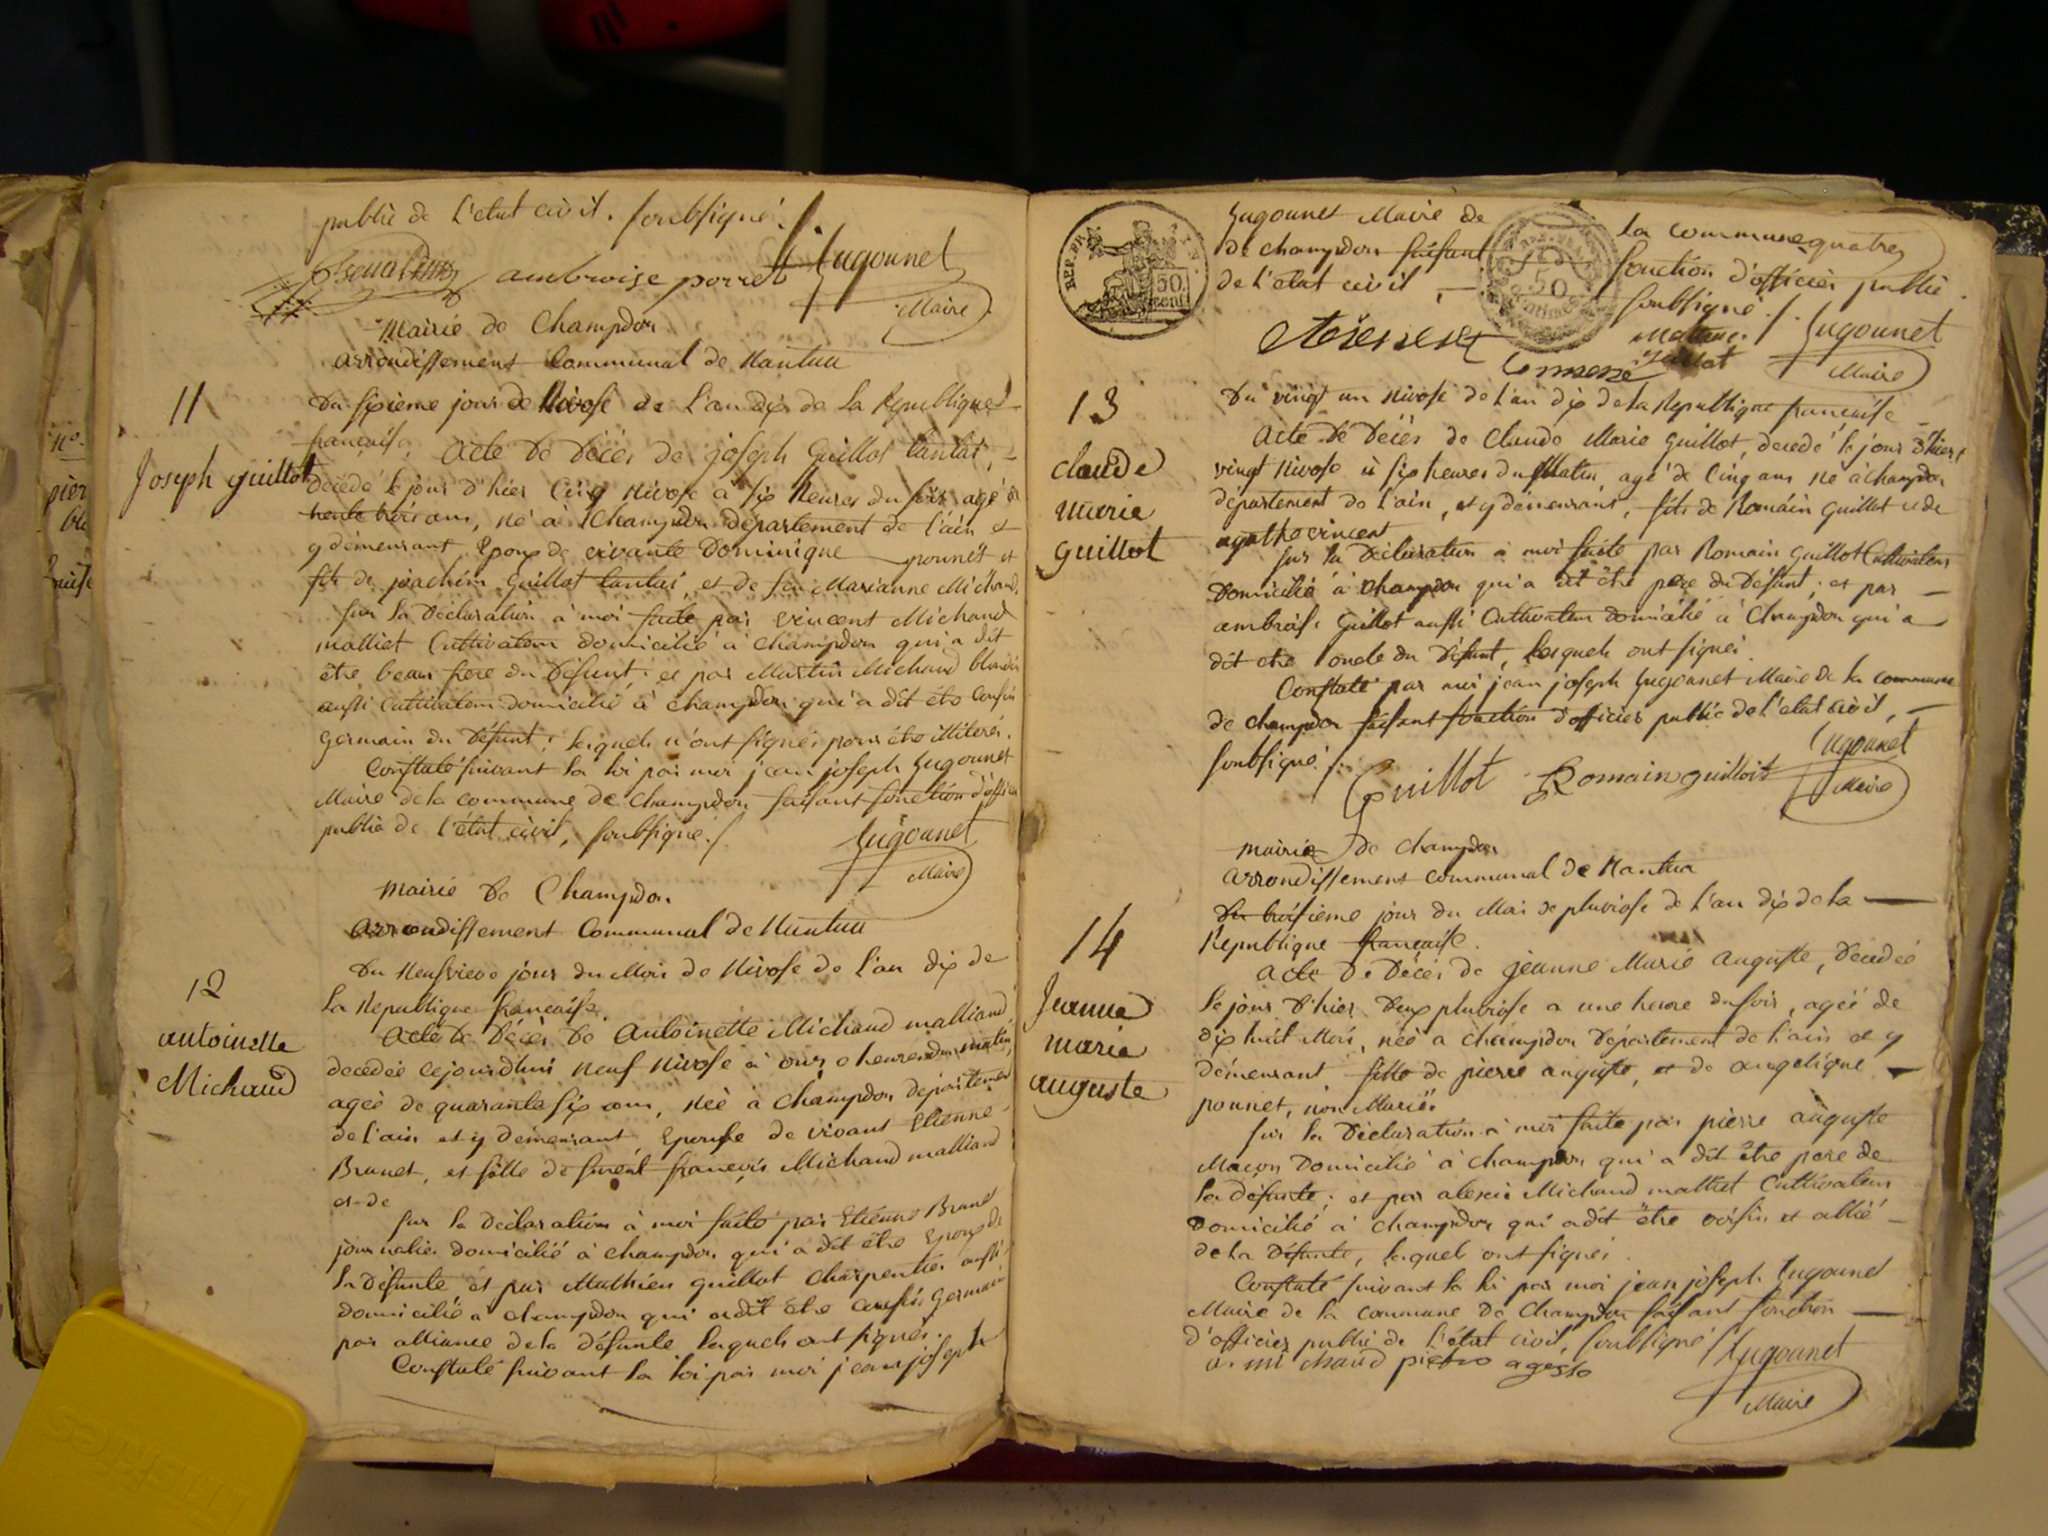 publié de l'etat civil. soubsigné.
ambroise porret Jugounet
Maire
Mairie de Champdor
arrondissement Communal de Nantua
11
Joseph guillot
Du sixieme jour de Nivose de L'an dix de La Republique
française. Acte De Décès de joseph Guillot tantat,
décédé le jour d'hier Cinq Nivose à six heures du soir, agé de
trente trois ans, né à Champdor département de l'ain et
y démeurant Epoux de vivante Dominique ponnet et
fils de joachim Guillot tantat, et de feu Marianne Michaud.
sur la Déclaration à moi faite par vincent Michaud
malliet Cultivateur domicilié à champdor qui a dit
être beau frere du Défunt; et par Martin Michaud blondin
aussi Cultivateur domicilié à champdor qui a dit être cousin
Germain du Défunt; lesquels n'ont signés pour être illiterés.
Constaté suivant la loi par moi jean joseph Jugounet
Maire de la commune de Champdor faisant fonction d'officier
public de l'état civil, soubsigné./.
Jugounet
Maire
Mairie De Champdor
arrondissement Communal de Nantua
12
antoinette
Michaud
Du Neufvieme jour du Mois de Nivose de l'an dix de
la Republique française.
Acte De Décès De Antoinette Michaud malliand
décédée cejourdhui neuf Nivose à onze heures du matin,
agée de quarante six ans, née à Champdor département
de l'ain et y démeurant Epouse de vivant Etienne
Brunet, et fille de François Michaud malliand
et de
sur la déclaration à moi faite par Etienne Brunet
journalier domicilié à champdor qui a dit être Epoux de
la Défunte, et par Mathieu guillot Charpentier aussi
domicilié à champdor qui a dit être cousin Germain
par alliance de la défunte lesquels ont signés.
Constaté suivant la loi par moi jean joseph
REP. FRA.
50.
cent.
Jugounet Maire de la commune
de champdor faisant fonction d'officier public
de l'etat civil, soubsigné./.
Jugounet
Maire
13
claude
marie
guillot
Du vingt un Nivose de l'an dix de la Republique française
Acte De Décès de Claude Marie Guillot, decedé le jour d'hier
vingt Nivose à six heures du Matin, agé de Cinq ans né à champdor
département de l'ain, et y démeurant, fils de Romain Guillot et de
agathe vincent
sur la Déclaration à moi faite par Romain Guillot Cultivateur
Domicilié à champdor qui a dit être pere du Défunt; et par
ambroise Guillot aussi Cultivateur domicilié à Champdor qui a
dit etre oncle du Défunt, lesquels ont signés.
Constaté par moi jean joseph Jugounet Maire de la commune
de champdor faisant fonction d'officier public de l'etat civil,
soubsigné./.
Guillot Romain guillot Jugounet
Maire
mairie de champdor
arrondissement communal de Nantua
14
Jeanne
marie
auguste
Du troisieme jour du Mois de pluviose de l'an dix de la
Republique française.
Acte De Décès de jeanne Marie Auguste, Décedée
le jour d'hier deux pluviose a une heure du soir, agée de
dix huit Mois, née à champdor Département de l'ain et y
démeurant fille de pierre auguste, et de angelique
ponnet, non Mariée.
sur la Déclaration à moi faite par pierre auguste
Maçon Domicilié à champdor qui a dit être pere de
la défunte; et par alexis Michaud malliet Cultivateur
domicilié à champdor qui a dit être voisin et allié
de la Défunte, lesquels ont signés.
Constaté suivant la loi par moi jean joseph Jugounet
Maire de la commune de Champdor faisant fonction
d'officier public de l'état civil, soubsigné
Jugounet
Maire